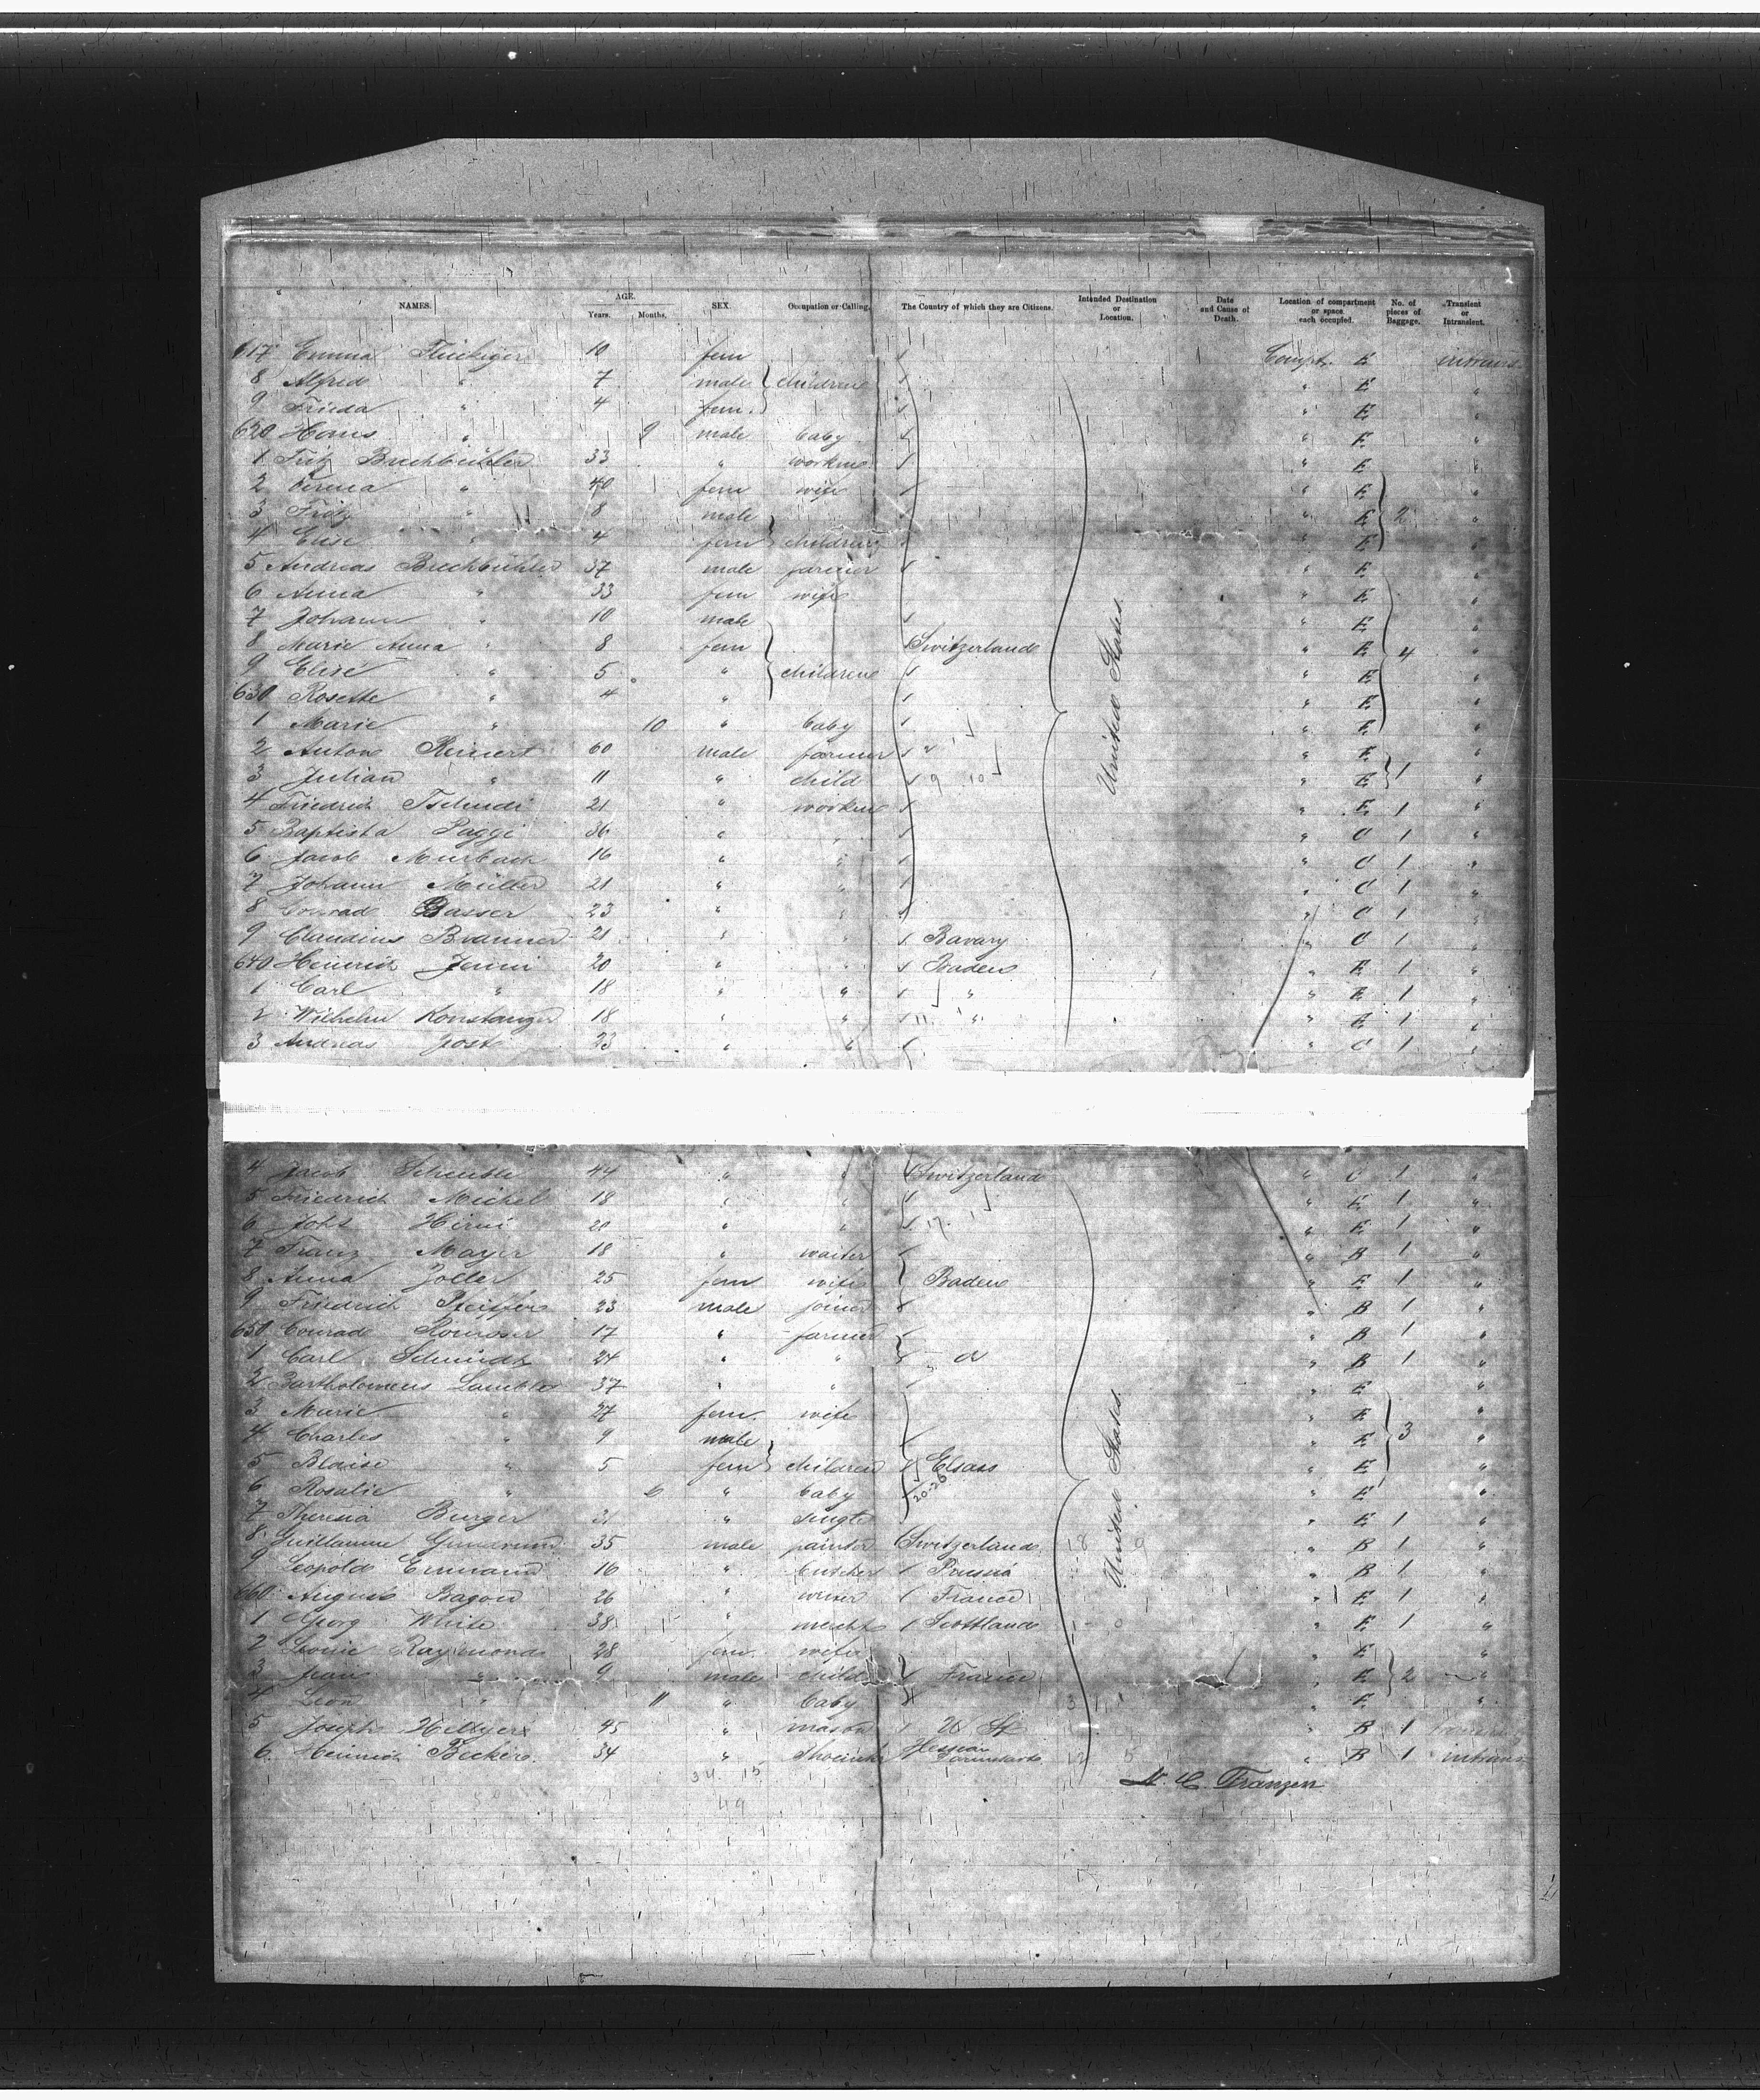 NAMES. AGE. Years. Months. SEX. Occupation or Calling. The Country of which they are Citizens. Intended Destination or Location. Date and Cause of Death. Location of compartment or space each occupied. No. of pieces of Baggage. Transient or Intransient.
617 Emma 10 fem / Compt. E intrans
8 Alfred " 7 male } children / " E "
9 Frieda " 4 fem. / " E "
620 Hans " 9 male baby / " E "
1 Fritz Brechbühler 33 " / " E "
2 Verena " 40 fem wife / " E "
3 Fritz " 8 male / " E } 2 "
4 Elise " 4 fem } children / " E "
5 Andreas Brechbühler 37 male farmer / " E "
6 Anna " 33 fem wife " E "
7 Johann " 10 male / " E "
8 Marie Anna " 8 fem Switzerland " E 4 "
9 Elise " 5 " } children / " E "
630 Rosette " 4 " / " E "
1 Marie " 10 " baby / " E "
2 Anton 60 male farmer / " E "
3 Julian " 11 " child / 9 10 " E } 1 "
4 Friedrich Tschudi 21 " / " E 1 "
5 Baptista Paggi 36 " " / " C 1 "
6 Jacob Murbach 16 " " / " C 1 "
7 Johann Müller 21 " " / " C 1 "
8 Conrad Gasser 23 " " / " C 1 "
9 Claudius 21 " " / Bavary " C 1 "
640 Heinrich Jenni 20 " " / Baden " E 1 "
1 Carl " 18 " " / " " E 1 "
2 Wilhelm Konstanzer 18 " " / " " E 1 "
3 Andreas Jost 23 " " / " C 1 "
United States.
4 Jacob 44 " " / Switzerland " C 1 "
5 Friedrich Michel 18 " " / " E 1 "
6 Johs Hirni 20 " " / 17. " E 1 "
7 Franz Mayer 18 " waiter / " B 1 "
8 Anna Zoller 25 fem wife Baden " E 1 "
9 Friedrich Pfeiffer 23 male joiner / " B 1 "
650 Conrad 17 " farmer / " B 1 "
1 Carl Schmidt 24 " " / " B 1 "
2 Bartholomeus 37 " " / " E "
3 Marie " 27 fem. wife " E "
4 Charles " 9 male / " E } 3 "
5 Blaise " 5 fem } children / Elsass " E "
6 Rosalie " 6 " baby / 20-26 " E "
7 Theresia Burger 31 " single " E 1 "
8 Guillaume 35 male painter Switzerland 18 9 " B 1 "
9 Leopold 16 " butcher / Prussia " B 1 "
660 August 26 " / France " E 1 "
1 Georg White 38 " mercht / Scottland " E 1 "
2 Raymond 28 fem. wife " E "
3 Jean " 9 male child / France " E } 2 "
4 Leon " 11 " baby " E "
5 Joseph 45 " mason / U St " B 1
6 Heinrich Becker 34 " / Hessen Darmstadt 12 5 " B 1 intrans
United States.
34 15
49
Franzen